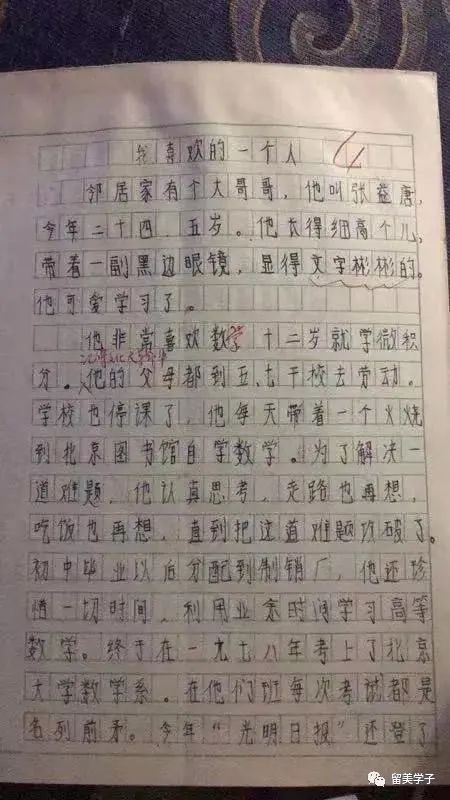 我喜欢的一个人
邻居家有个大哥哥，他叫张益唐，
今年二十四、五岁。他长得细高个儿，
带着一副黑边眼镜，显得文字彬彬的。
他可爱学习了。
他非常喜欢数学 十二岁就学微积
分。他的父母都到五、七干校去劳动。
学校也停课了，他每天带着一个火烧
到北京图书馆自学数学。为了解决一
道难题，他认真思考，走路也再想，
吃饭也再想，直到把这道难题攻破了。
初中毕业以后分配到制销厂，他还珍
惜一切时间，利用业余时间学习高等
数学。终于在一九七八年考上了北京
大学数学系。在他们班每次考试都是
名列前矛。今年“光明日报”还登了
留美学子